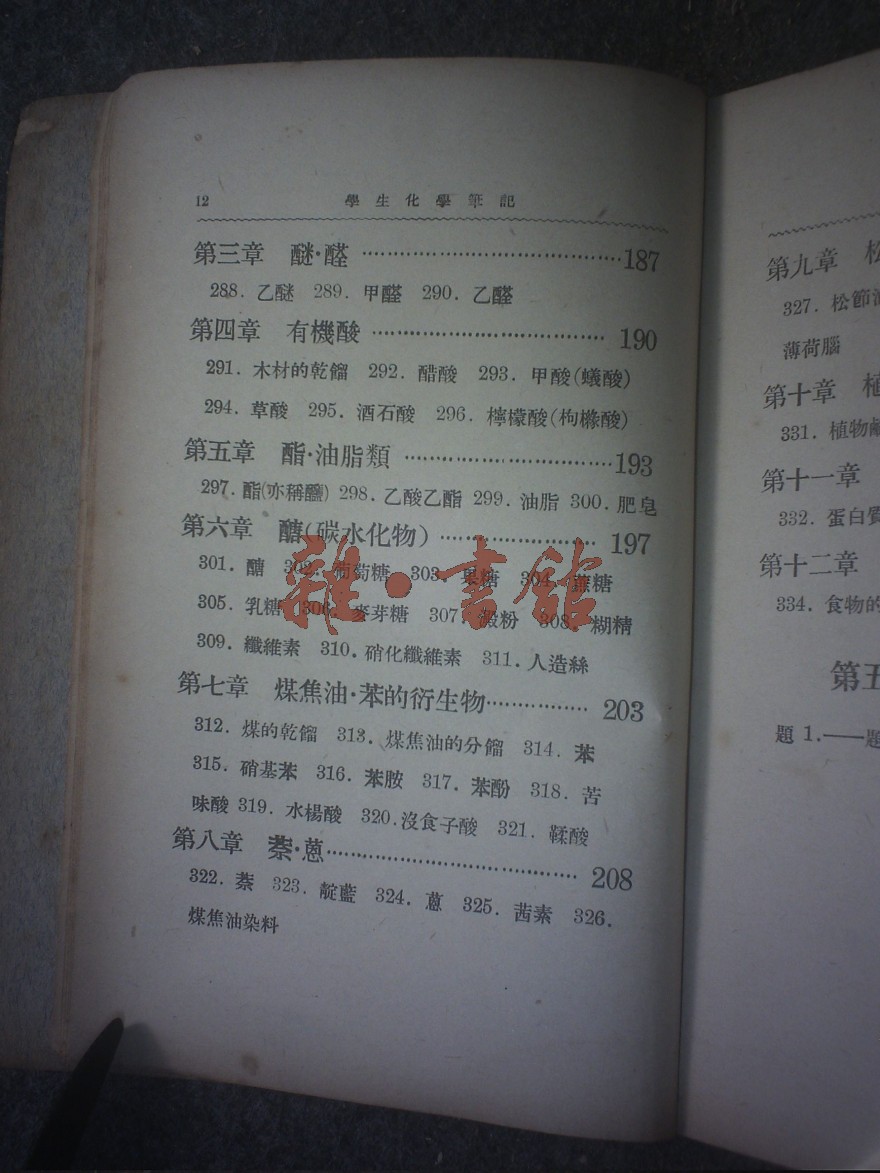 12 學生化學筆記
第三章 醚·醛 187
288. 乙醚 289. 甲醛 290. 乙醛
第四章 有機酸 190
291. 木材的乾餾 292. 醋酸 293. 甲酸(蟻酸)
294. 草酸 295. 酒石酸 296. 檸檬酸(枸櫞酸)
第五章 酯·油脂類 193
297. 酯(亦稱) 298. 乙酸乙酯 299. 油脂 300. 肥皂
第六章 醣(碳水化物) 197
301. 醣 302. 葡萄糖 303. 果糖 304. 蔗糖
305. 乳糖 306. 麥芽糖 307. 澱粉 308. 糊精
309. 纖維素 310. 硝化纖維素 311. 人造絲
第七章 煤焦油·苯的衍生物 203
312. 煤的乾餾 313. 煤焦油的分餾 314. 苯
315. 硝基苯 316. 苯胺 317. 苯酚 318. 苦
味酸 319. 水楊酸 320. 沒食子酸 321. 鞣酸
第八章 萘·蒽 208
322. 萘 323. 靛藍 324. 蒽 325. 茜素 326.
煤焦油染料
雜·書館
第九章 松
327. 松節油
薄荷腦
第十章 植
331. 植物鹼
第十一章
332. 蛋白質
第十二章
334. 食物的
第五
題 1.——題